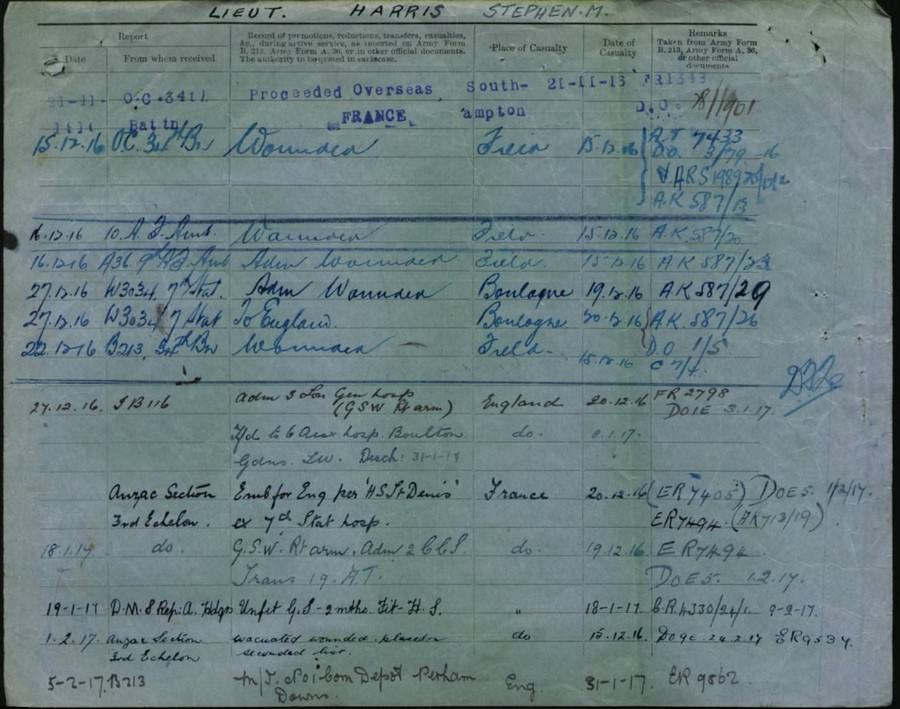 LIEUT. HARRIS STEPHEN. M.
Report
Date From whom received
Record of promotions, reductions, transfers, casualties,
&c., during active service, as inserted on Army Form
B. 213, Army Form A. 36, or in other official documents.
The authority to be quoted in each case.
Place of Casualty
Date of
Casualty
Remarks
Taken from Army Form
B. 213, Army Form A. 36,
or other official
documents
21-11- O.C. 34th Proceeded Overseas South- 21-11-
Battn FRANCE ampton D.O. 8/1901
15.12.16 O.C. 34th Bn Wounded Field 15.12.16 7433
D.O. 3/79
A.K 587/
16.12.16 10. A. F. Amb. Wounded Field. 15.12.16 A.K. 587/20
16.12.16 A36 9th A F Amb Adm Wounded Field. 15.12.16 A K 587/23
27.12.16 W3034 7th Stat. Adm Wounded Boulogne 19.12.16 A K 587/29
27.12.16 W3034 7 Stat To England. Boulogne 20.12.16 A K. 587/26
22.12.16 B213, 34th Bn Wounded Field - 15.12.16 D.O 1/5
27.12.16. adm 3 Lon Gen hosp England 20.12.16 FR 2798
(GSW Rt arm) DO1E 3.1.17.
Tfd to 6 Aux hosp. Boulton do. .1.17.
Gdns. Disch: 31-1-17
Anzac Section Emb for Eng per 'HS St Denis' France 20.12.16 (ER 7405) DOE5. 1/2/17.
3rd Echelon. ex 7th Stat hosp. ER 7494. (AK713/19)
18.1.17 do. G.S.W. Rt arm. Adm 2 C C S. do. 19.12.16. ER 7494
Trans 19. A.T. DOE5. 1.2.17.
19-1-17 D.M.S Rep: A. Hdqrs Unfit G.S - 2 mths. Fit H.S. " 18-1-17. 9-2-17.
1.2.17. Anzac Section evacuated wounded placed on do 15.12.16. 24.2.17 ER9534
3rd Echelon seconded list.
5-2-17. B213 M/I. No 1 Com Depot Perham Eng. 31-1-17. ER 9562
Downs.